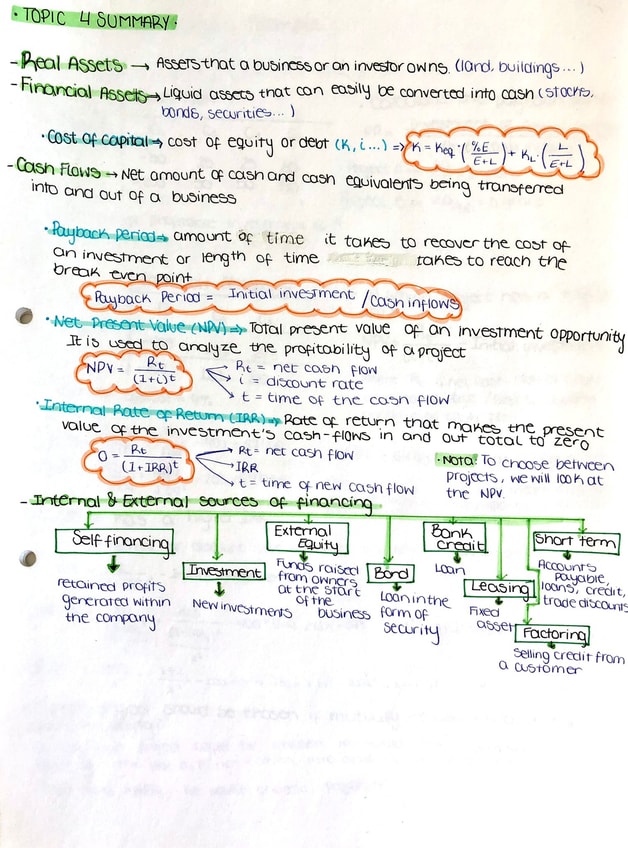 · TOPIC 4 SUMMARY ·
- Real Assets → Assets that a business or an investor owns. (land, buildings...)
- Financial Assets → Liquid assets that can easily be converted into cash (stocks,
bonds, securities...)
· Cost of capital → cost of equity or debt (K, i...) => K = Keq · (%E / E+L) + KL · (L / E+L)
- Cash Flows → Net amount of cash and cash equivalents being transferred
into and out of a business
· Payback period → amount of time it takes to recover the cost of
an investment or length of time takes to reach the
break even point
Payback Period = Initial investment / Cash inflows
· Net Present Value (NPV) → Total present value of an investment opportunity
It is used to analyze the profitability of a project
NPV = Rt / (1+i)^t
Rt = net cash flow
i = discount rate
t = time of the cash flow
· Internal Rate of Return (IRR) → Rate of return that makes the present
value of the investment's cash-flows in and out total to zero
0 = Rt / (1+IRR)^t
Rt = net cash flow
IRR
t = time of new cash flow
· Nota: To choose between
projects, we will look at
the NPV.
- Internal & External sources of financing
Self financing
retained profits
generated within
the company
Investment
New investments
External
Equity
Funds raised
from owners
at the start
of the
business
Bond
Loan in the
form of
security
Bank
Credit
Loan
Leasing
Fixed
asset
Short term
Accounts
Payable,
loans, credit,
trade discounts
Factoring
Selling credit from
a customer